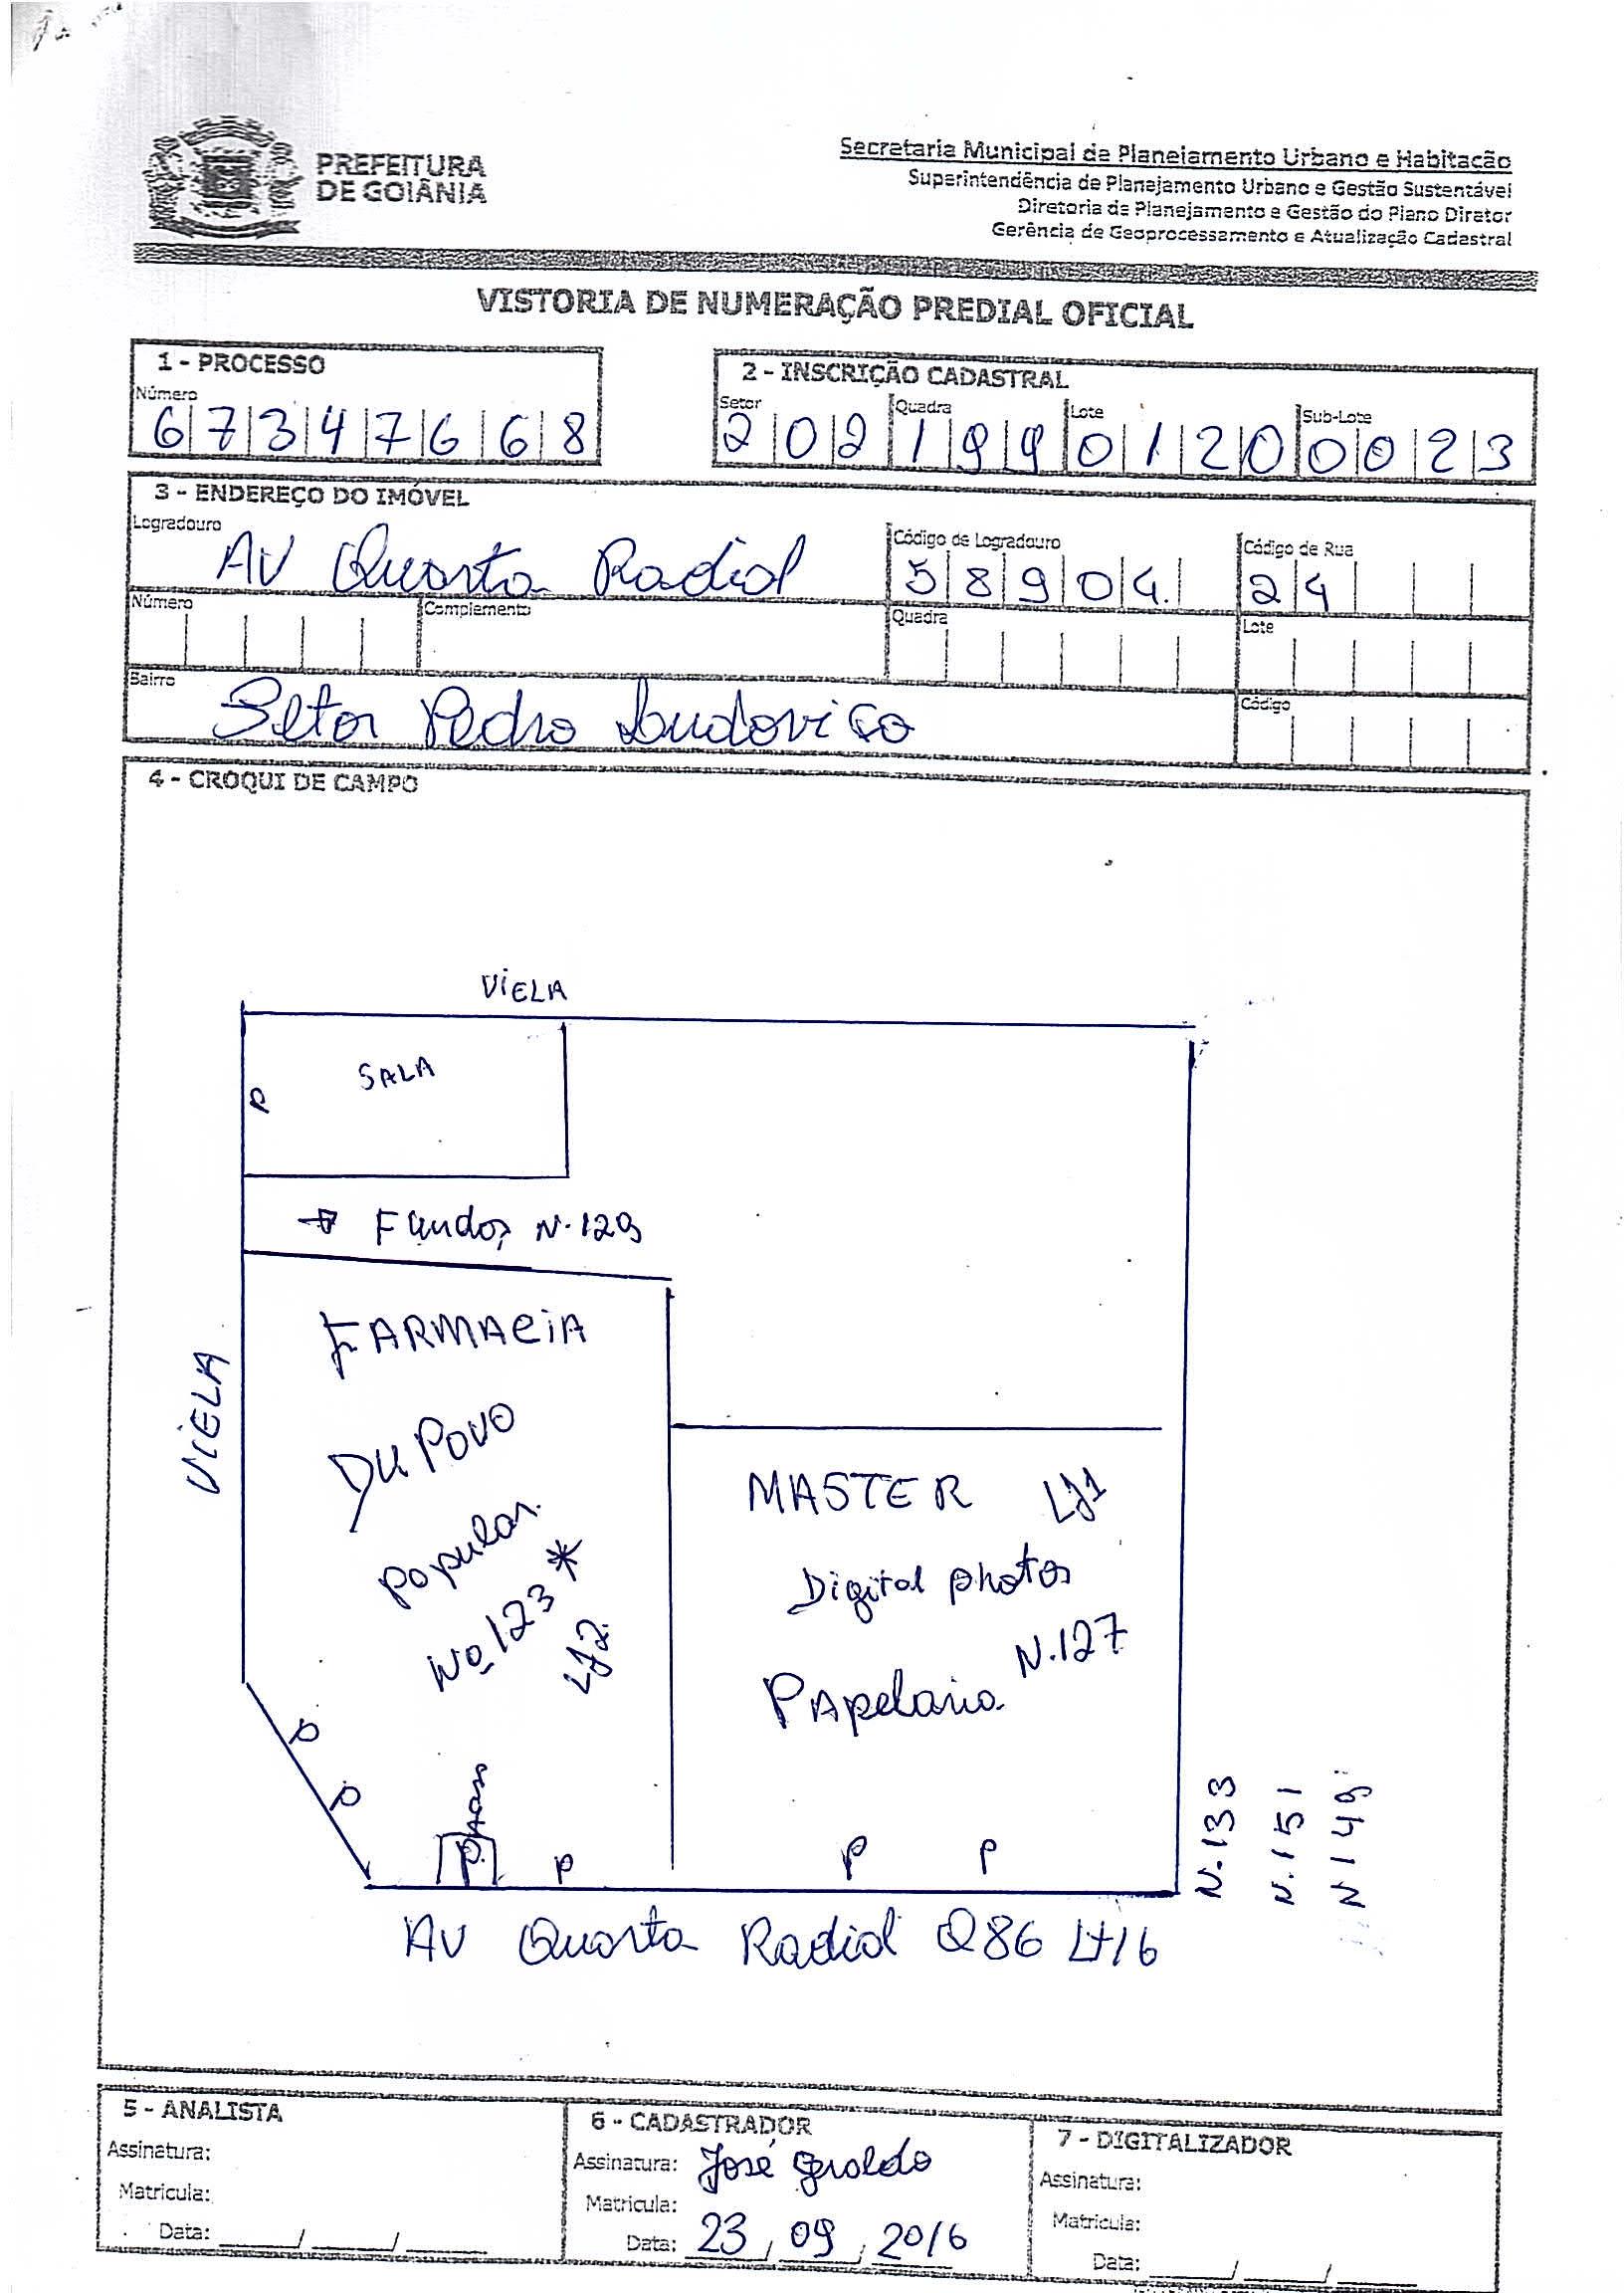 PREFEITURA
DE GOIÂNIA
Secretaria Municipal de Planejamento Urbano e Habitação
Superintendência de Planejamento Urbano e Gestão Sustentável
Diretoria de Planejamento e Gestão do Plano Diretor
Gerência de Geoprocessamento e Atualização Cadastral
VISTORIA DE NUMERAÇÃO PREDIAL OFICIAL
1 - PROCESSO
Número
67347668
2 - INSCRIÇÃO CADASTRAL
Setor Quadra Lote Sub-Lote
202 199 0120 0023
3 - ENDEREÇO DO IMÓVEL
Logradouro Código de Logradouro Código de Rua
AV Quarta Radial 58904 24
Número Complemento Quadra Lote
Bairro Código
Setor Pedro Ludovico
4 - CROQUI DE CAMPO
VIELA
SALA
P
Fundos N.129
FARMACIA
DU POVO
Popular
Nº 123 *
LJ2
VIELA
MASTER LJ1
Digital photos
N.127
PApelaria
P
P
P
P
P
P
N.133
N.151
N149
AV Quarta Radial Q86 Lt16
5 - ANALISTA
Assinatura:
Matricula:
Data: ____/____/____
6 - CADASTRADOR
Assinatura: José Geraldo
Matricula:
Data: 23/09/2016
7 - DIGITALIZADOR
Assinatura:
Matricula:
Data: ____/____/____